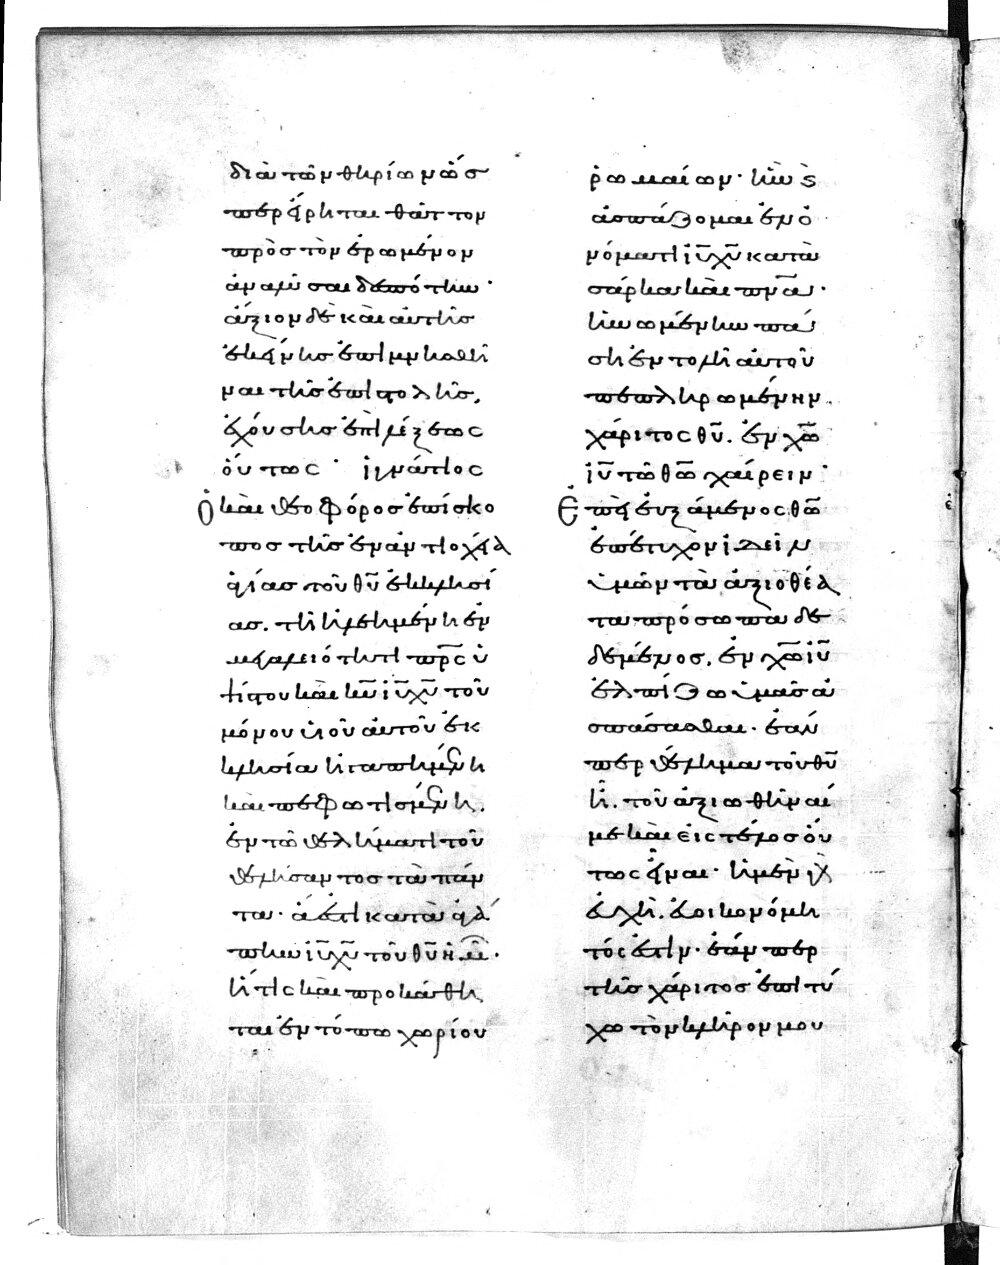 διὰ τῶν θηρίων ὥσ
περ εἴρηται θᾶττον
πρὸς τὸν ἐρωμένον
ἀναλύσαι δεσπότην·
ἄξιον δὲ καὶ αὐτῆς
ἐκείνης ἐπιμνησθῆ
ναι τῆς ἐπιστολῆς,
ἐχούσης ἐπὶ λέξεως
οὕτως · ἰγνάτιος
ὁ καὶ θεοφόρος ἐπίσκο
πος τῆς ἐν ἀντιοχεία
ἁγίας τοῦ θῦ ἐκκλησί
ας. τῆ ἠλεημένη ἐν
μεγαλειότητι πρ̅ς ὑ
ψίστου καὶ κῦ ἰῦ χῦ τοῦ
μόνου υἱοῦ αὐτοῦ ἐκ
κλησία ἠγαπημένη
καὶ πεφωτισμένη.
ἐν τῶ θελήματι τοῦ
θελήσαντος τὰ πάν
τα· ἅ ἐστι κατὰ ἀγά
πην ἰῦ χῦ τοῦ θῦ ἡμῶν·
ἥτις καὶ προκάθη
ται ἐν τόπω χωρίου
ῥωμαίων· ἣν καὶ
ἀσπάζομαι ἐν ὀ
νόματι ἰῦ χῦ κατὰ
σάρκα καὶ πν̅α·
ἡνωμένην πά
ση ἐντολῆ αὐτοῦ
πεπληρωμένην
χάριτος θῦ. ἐν χῶ
ἰῦ τῶ θῶ χαίρειν·
ἐπεὶ εὐξάμενος θῶ
ἐπέτυχον ἰδεῖν
ὑμῶν τὰ ἀξιοθέα
τα πρόσωπα δε
δεμένος. ἐν χῶ ἰῦ
ἐλπίζω ὑμᾶς ἀ
σπάσασθαι· ἐάν
περ θέλημα τοῦ θῦ
ἦ. τοῦ ἀξιωθῆναί
με καὶ εἰς τέλος οὕ
τως εἶναι· ἡ μὲν γὰρ
ἀρχὴ. εὐοικονόμη
τός ἐστιν· ἐάν περ
τῆς χάριτος ἐπιτύ
χω τὸν κλῆρον μου